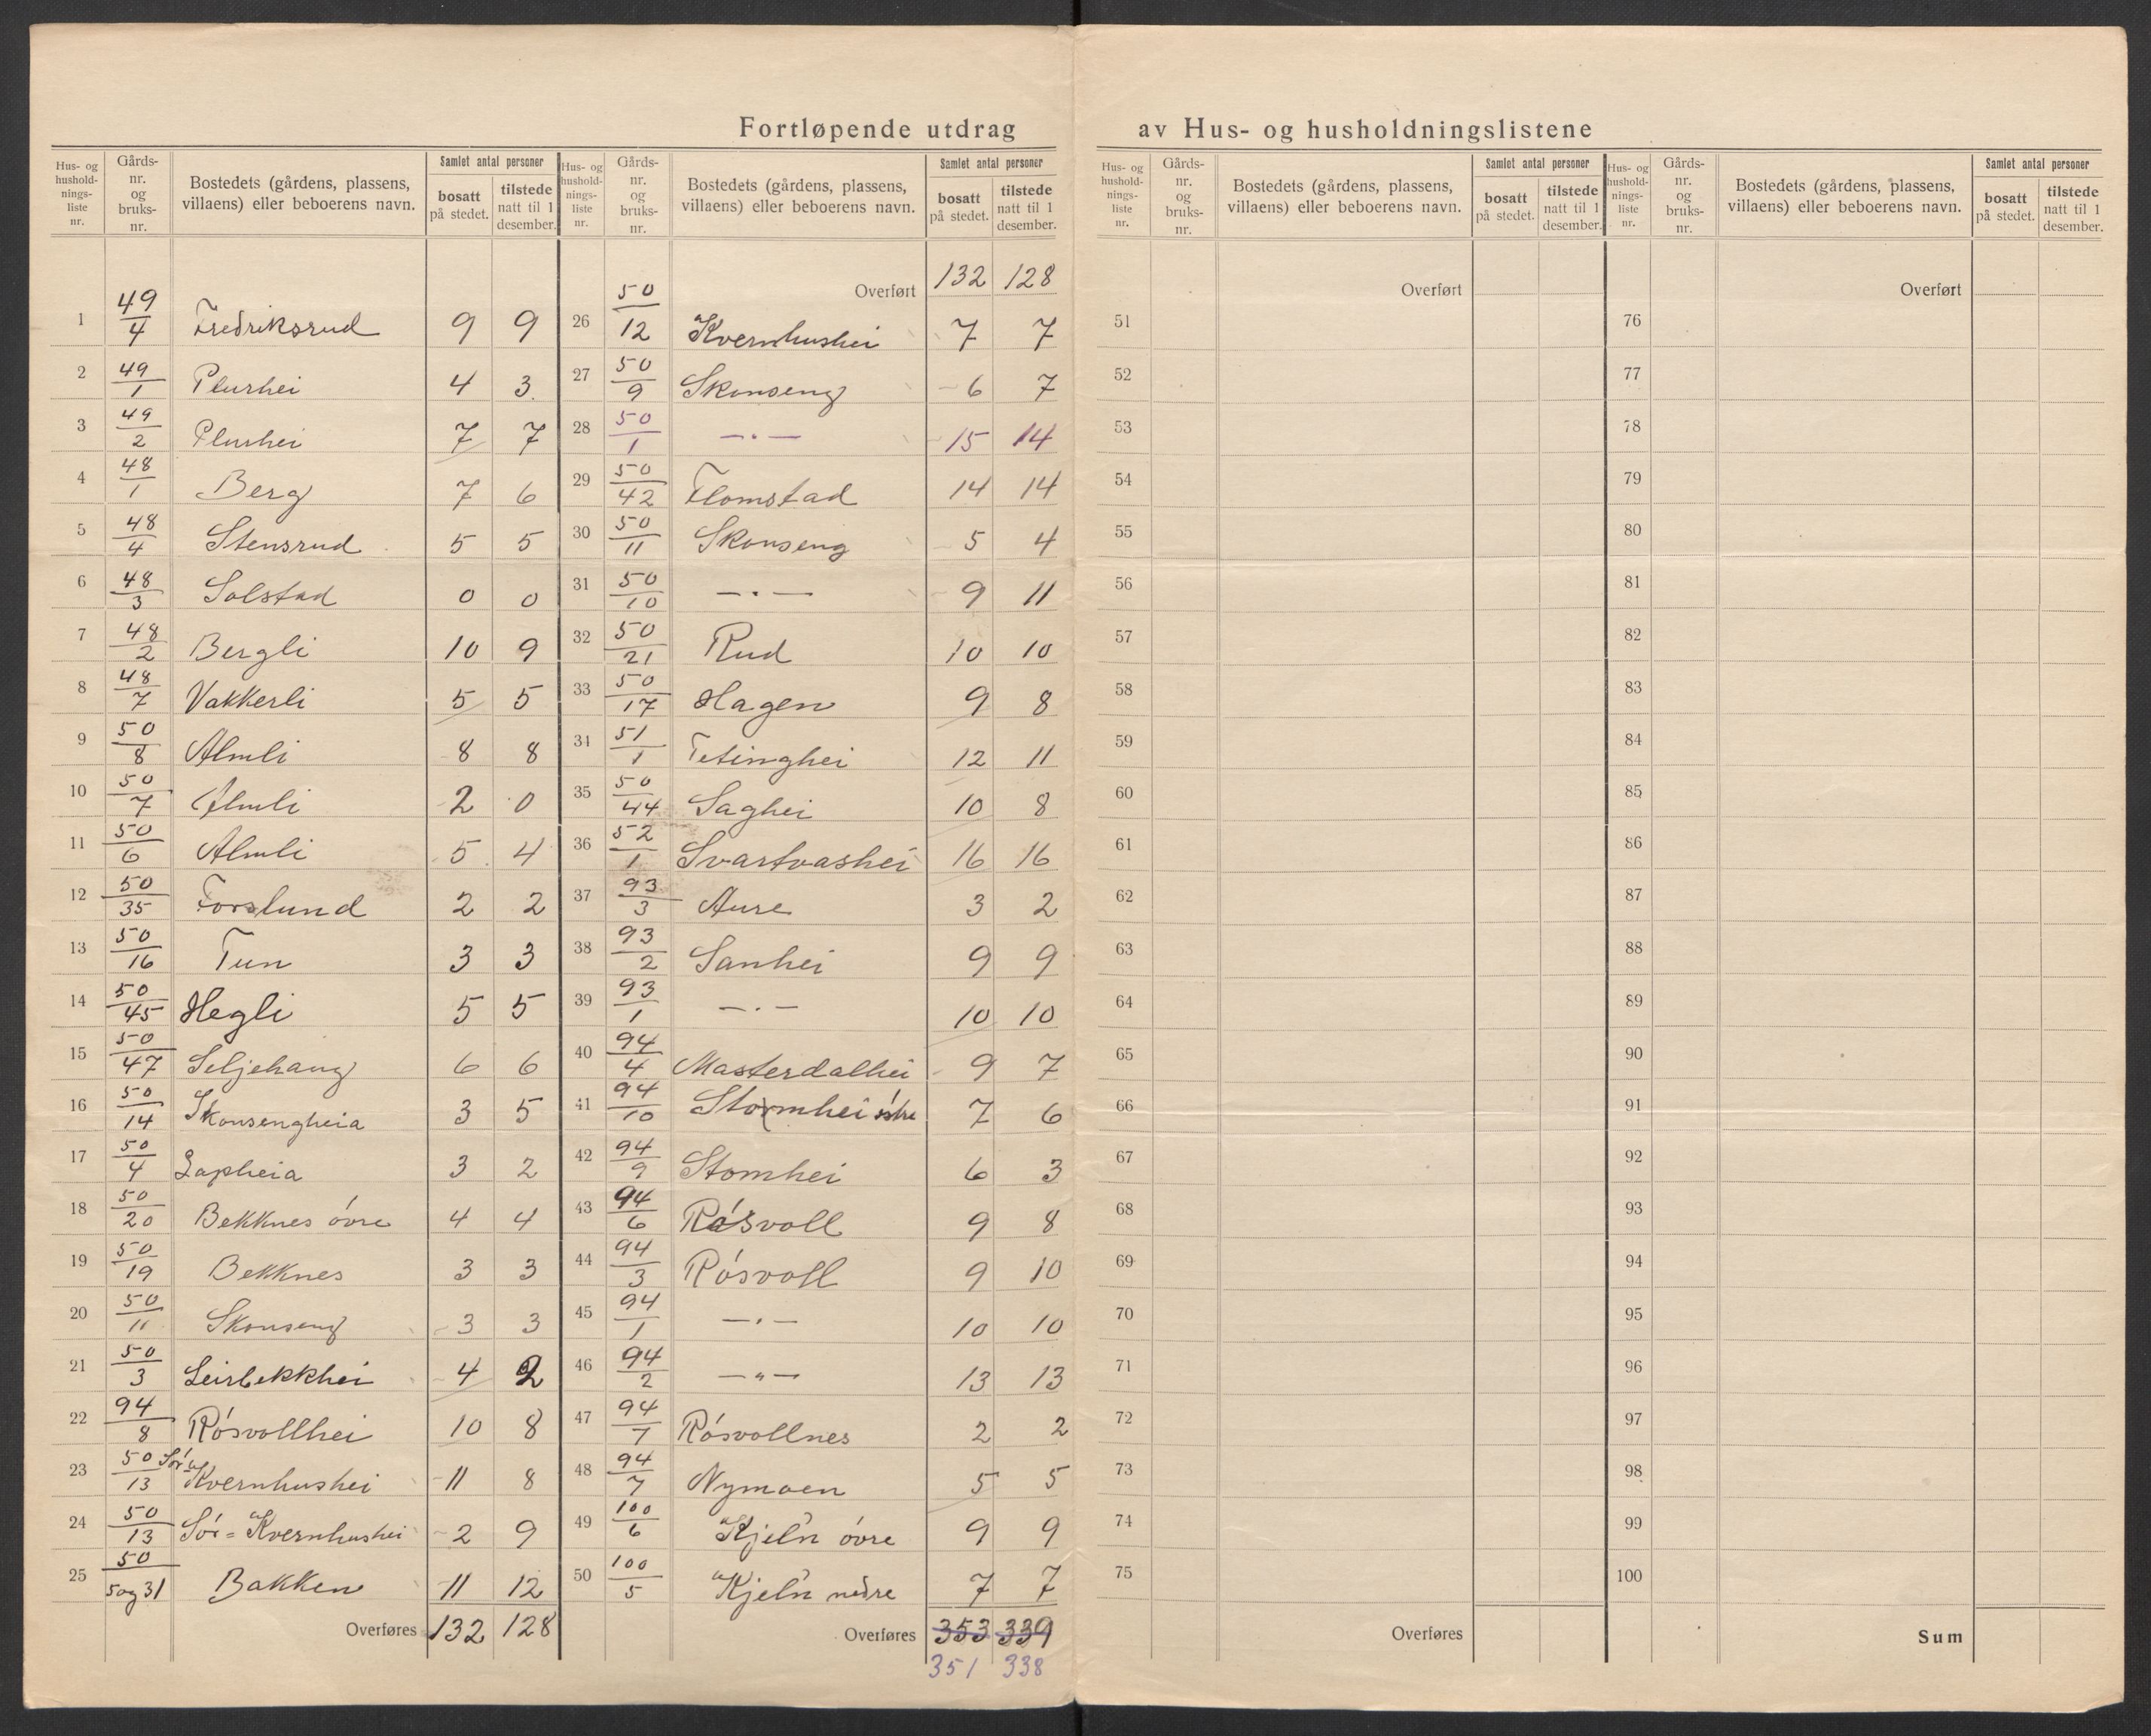 Fortløpende utdrag av Hus- og husholdningslistene
Hus- og husholdnings- liste nr. | Gårds- nr. og bruks- nr. | Bostedets (gårdens, plassens, villaens) eller beboerens navn. | Samlet antal personer bosatt på stedet. | tilstede natt til 1 desember.
1 49/4 Fredriksrud 9 9
2 49/1 Plurhei 4 3
3 49/2 Plurhei 7 7
4 48/1 Berg 7 6
5 48/4 Stensrud 5 5
6 48/3 Solstad 0 0
7 48/2 Bergli 10 9
8 48/7 Vakkerli 5 5
9 50/8 Almli 8 8
10 50/7 Almli 2 0
11 50/6 Almli 5 4
12 50/35 Forslund 2 2
13 50/16 Tun 3 3
14 50/45 Hegli 5 5
15 50/47 Seljehaug 6 6
16 50/14 Skonsengheia 3 5
17 50/4 Lapheia 3 2
18 50/20 Bekknes óvre 4 4
19 50/19 Bekknes 3 3
20 50/11 Skonseng 3 3
21 50/3 Leirbekkhei 4 2
22 94/8 Rósvollhei 10 8
23 50/13 Sór Kvernhushei 11 8
24 50/13 Sór = Kvernhushei 2 9
25 50/5 og 31 Bakken 11 12
Overføres 132 128
Hus- og husholdnings- liste nr. | Gårds- nr. og bruks- nr. | Bostedets (gårdens, plassens, villaens) eller beboerens navn. | Samlet antal personer bosatt på stedet. | tilstede natt til 1 desember.
Overført 132 128
26 50/12 Kvernhushei 7 7
27 50/9 Skonseng 6 7
28 50/1 — . — 15 14
29 50/42 Flomstad 14 14
30 50/11 Skonseng 5 4
31 50/10 — . — 9 11
32 50/21 Rud 10 10
33 50/17 Hagen 9 8
34 51/1 Tetinghei 12 11
35 50/44 Saghei 10 8
36 52/1 Svartvashei 16 16
37 93/3 Aure 3 2
38 93/2 Sanhei 9 9
39 93/1 — . — 10 10
40 94/4 Masterdalhei 9 7
41 94/10 Stormhei 7 6
42 94/9 Stomhei 6 3
43 94/6 Rósvoll 9 8
44 94/3 Rósvoll 9 10
45 94/1 — . — 10 10
46 94/2 — " — 13 13
47 94/7 Rósvollnes 2 2
48 94/7 Nymoen 5 5
49 100/6 Kjel'n óvre 9 9
50 100/5 Kjel'n nedre 7 7
Overføres 353 339
351 338
Hus- og hushold- nings- liste nr. | Gårds- nr. og bruks- nr. | Bostedets (gårdens, plassens, villaens) eller beboerens navn. | Samlet antal personer bosatt på stedet. | tilstede natt til 1 desember.
Overført
51
52
53
54
55
56
57
58
59
60
61
62
63
64
65
66
67
68
69
70
71
72
73
74
75
Overføres
Hus- og hushold- nings- liste nr. | Gårds- nr. og bruks- nr. | Bostedets (gårdens, plassens, villaens) eller beboerens navn. | Samlet antal personer bosatt på stedet. | tilstede natt til 1 desember.
Overført
76
77
78
79
80
81
82
83
84
85
86
87
88
89
90
91
92
93
94
95
96
97
98
99
100
Sum